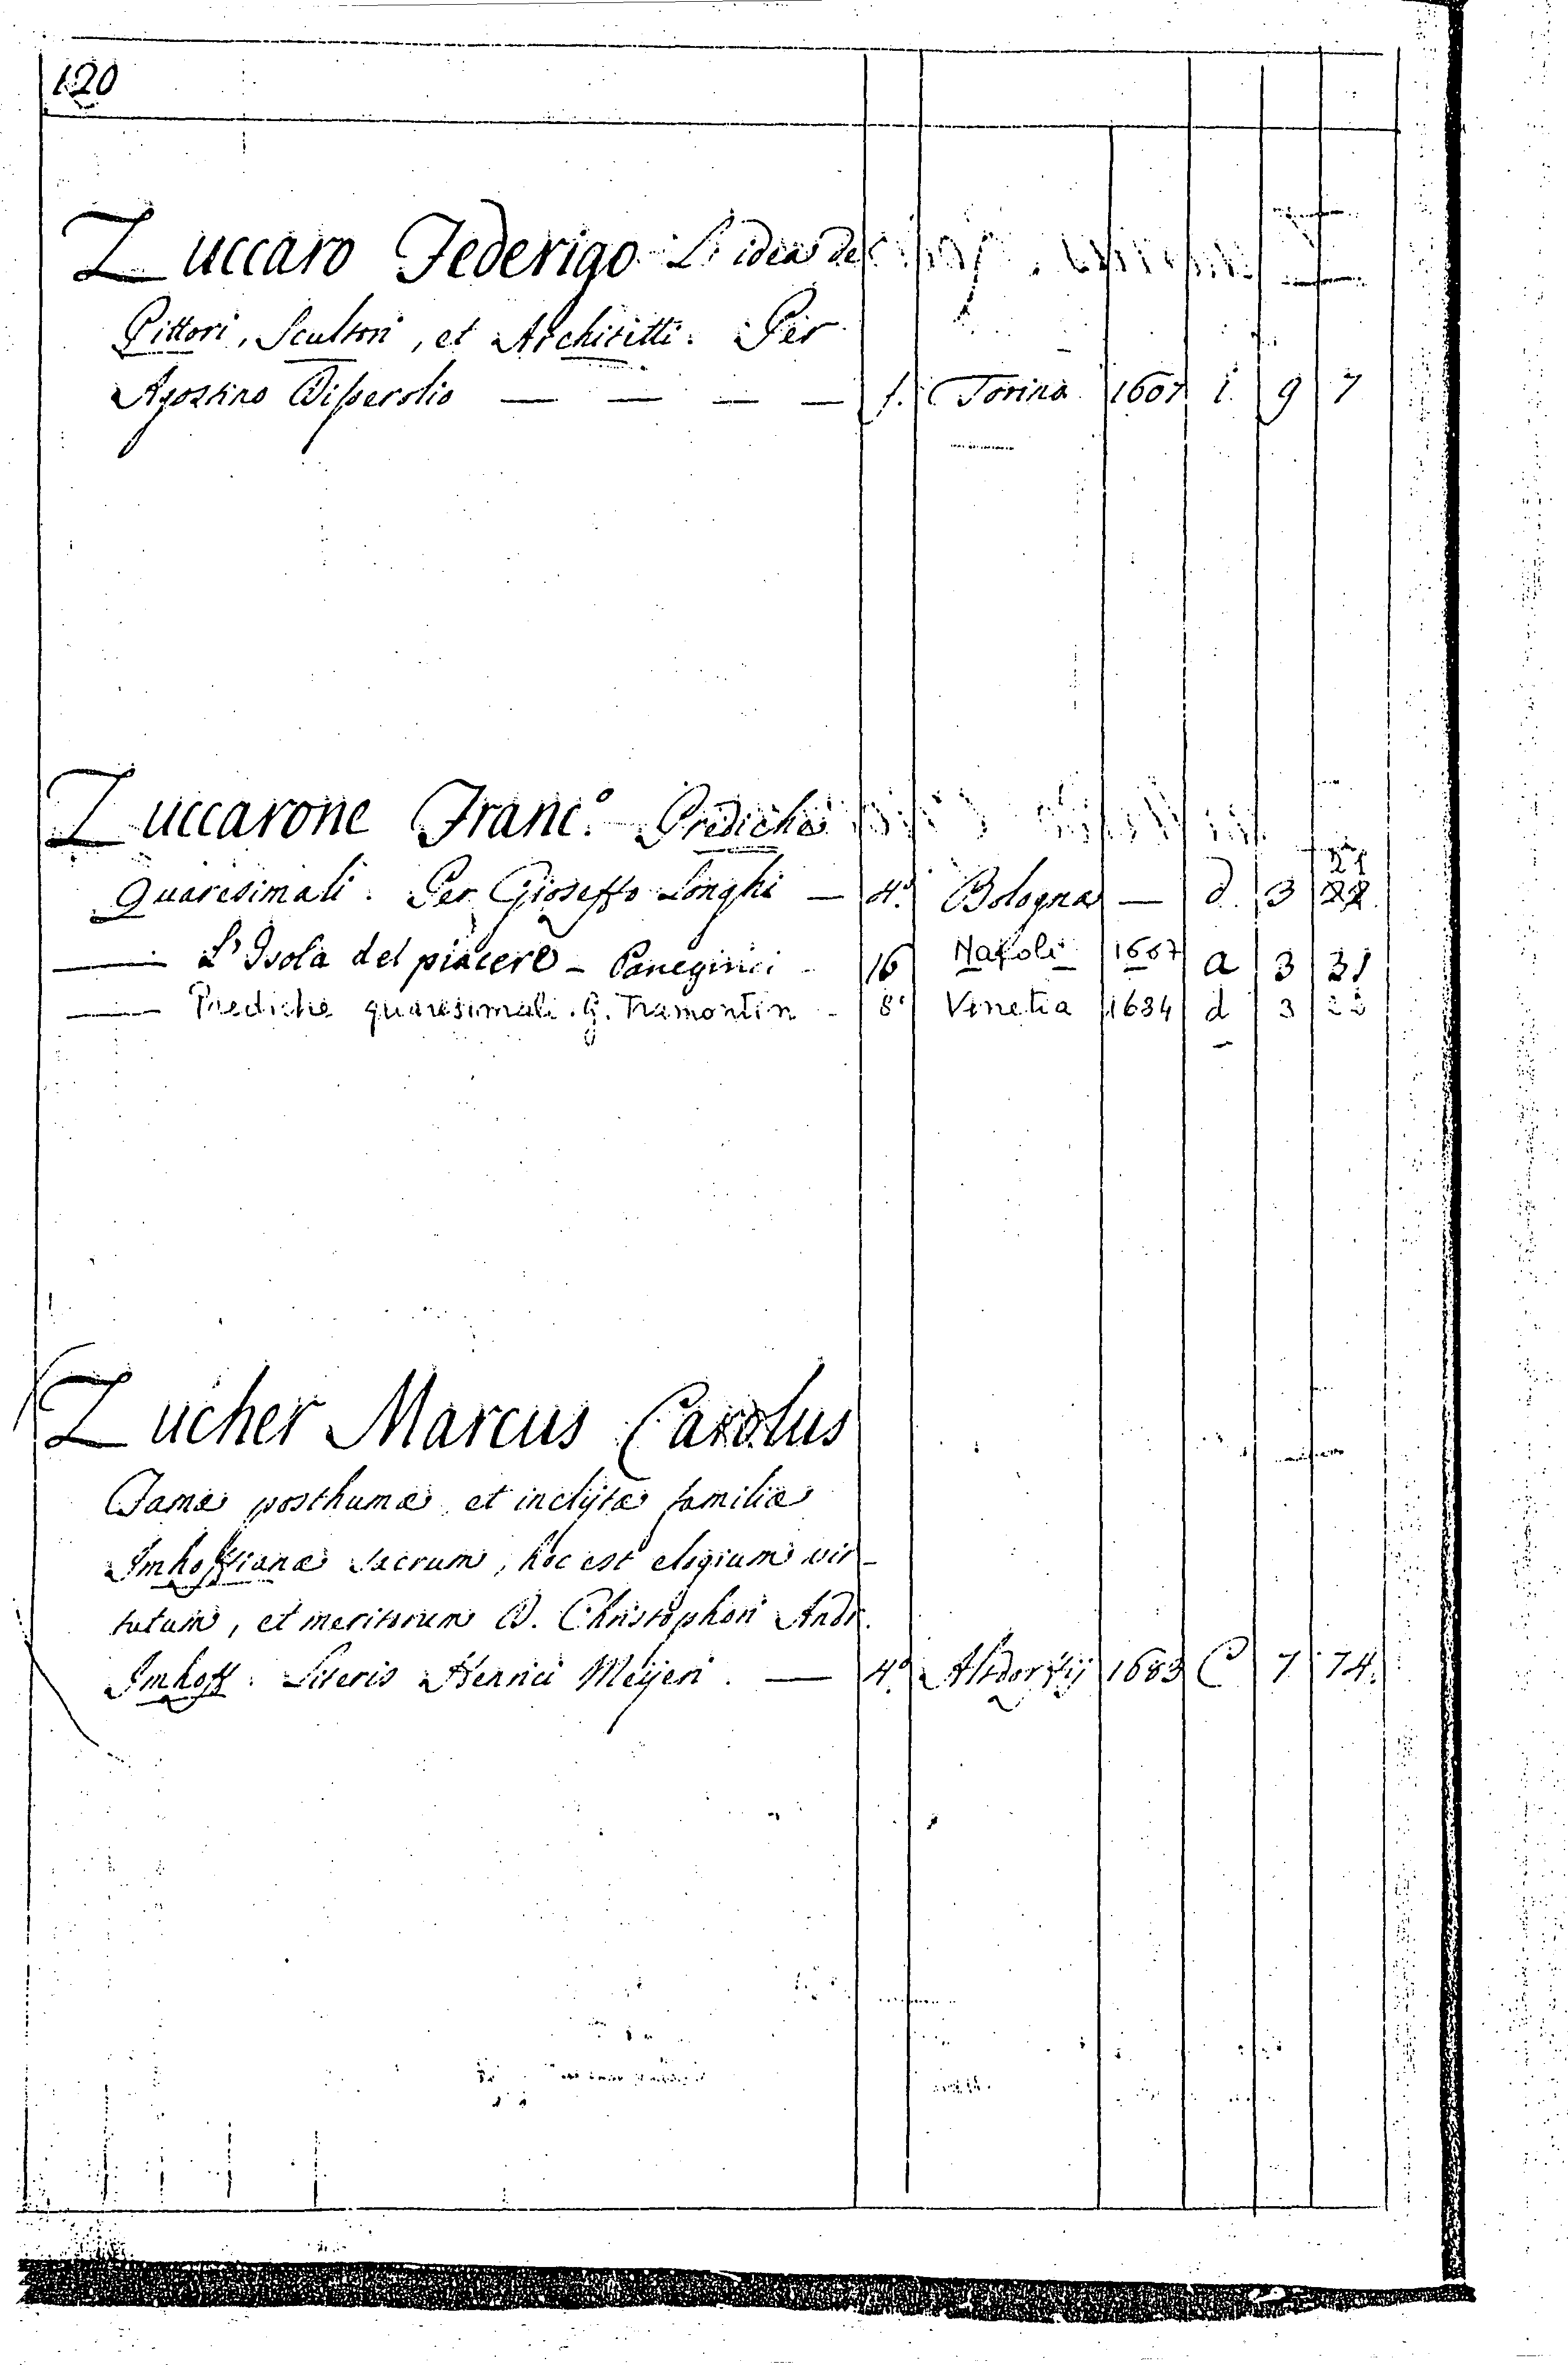 120
Zuccaro Federigo L'idea de
Pittori, Scultori, et Architetti. Per
Agostino Disserolio — — — — f. Torino 1607 i. 9 7
Zuccarone Franc.º Prediche
Quaresimali. Per Gioseffo Longhi — 4.º Bologna — d. 3 21
—— L'Isola del piacere - Panegirici - 16 Napoli 1667 a 3 31
—— Prediche quaresimali. G. Tramontin - 8º Venetia 1684 d 3 22
Zucher Marcus Carolus
Famæ posthumæ, et inclijtæ familiæ
Imhoffianæ sacrum, hoc est elogium vir-
tutum, et meritorum D. Christophori Andr.
Imhoff. Literis Henrici Meijeri. — 4.º Altdorffij 1683 C 7 74.